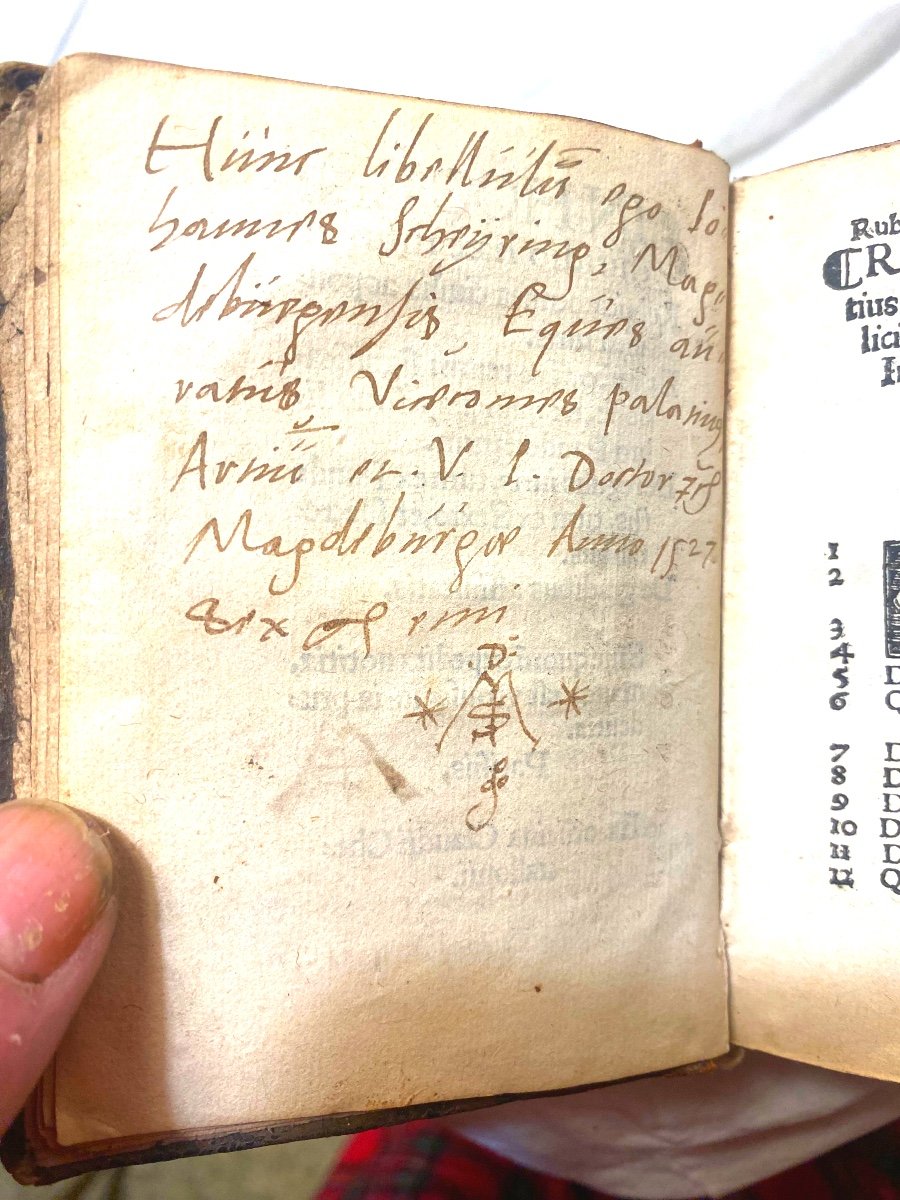 Hunc libellulū ego Jo
hannes Scheÿring, Mag
deburgensis, Eques au
ratus, Vicecomes palatinus
Artiū et. V. I. Doctor
Magdeburgae Anno 1527.
sex emi
D:
* *
Rub
CR
tius
lici
1
2
3
4
5 D
6 Q
7 D
8 D
9 D
10 D
11 D
12 Q